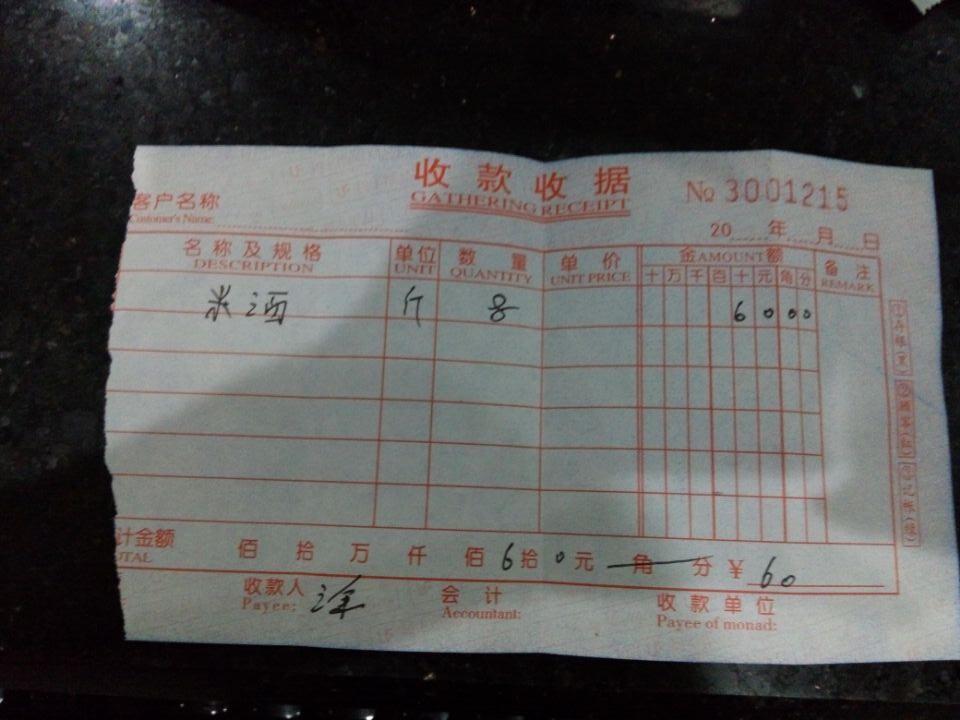 收款收据
GATHERING RECEIPT
№ 3001215
客户名称
Customer's Name:
20 年 月 日
名称及规格 单位 数量 单价 金AMOUNT额 备注
DESCRIPTION UNIT QUANTITY UNIT PRICE 十 万 千 百 十 元 角 分 REMARK
米酒 斤 8 6 0 0 0
①存根(黑) ②顾客(红) ③记帐(绿)
计金额 佰 拾 万 仟 佰 6 拾 0 元 角 分 ¥ 60
OTAL
收款人 涂 会计 收款单位
Payee: Accountant: Payee of monad: